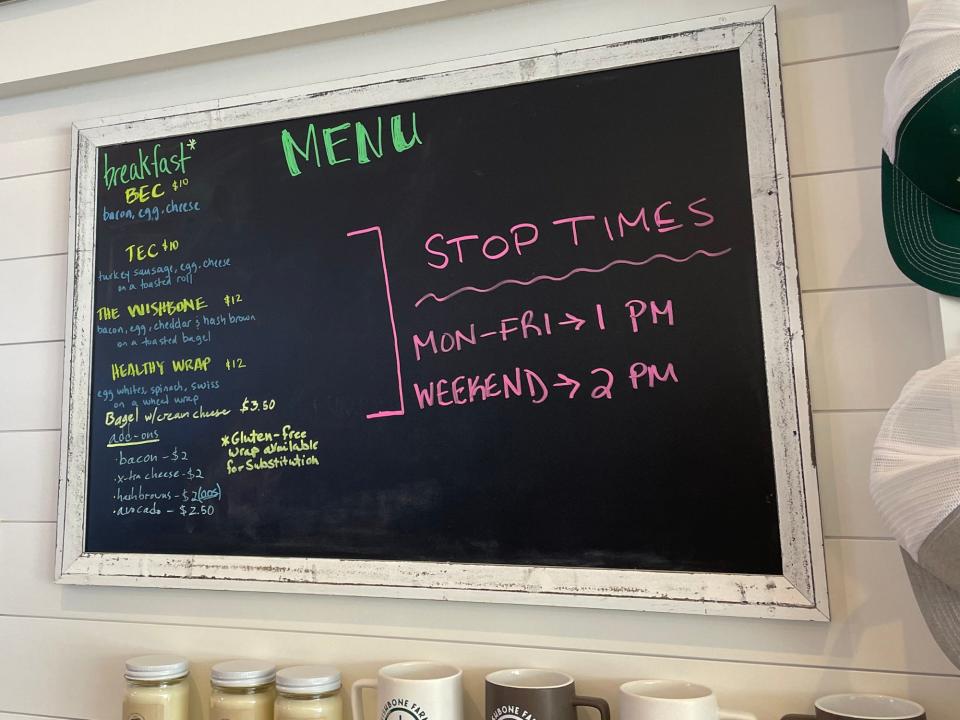 MENU
breakfast*
BEC $10
bacon, egg, cheese
TEC $10
turkey sausage, egg, cheese
on a toasted roll
THE WISHBONE $12
bacon, egg, cheddar & hash brown
on a toasted bagel
HEALTHY WRAP $12
egg whites, spinach, swiss
on a wheat wrap
Bagel w/cream cheese $3.50
add-ons
· bacon - $2
· x-tra cheese - $2
· hashbrowns - $2 (oos)
· avocado - $2.50
*Gluten-free
wrap available
for Substitution
STOP TIMES
MON-FRI → 1 PM
WEEKEND → 2 PM